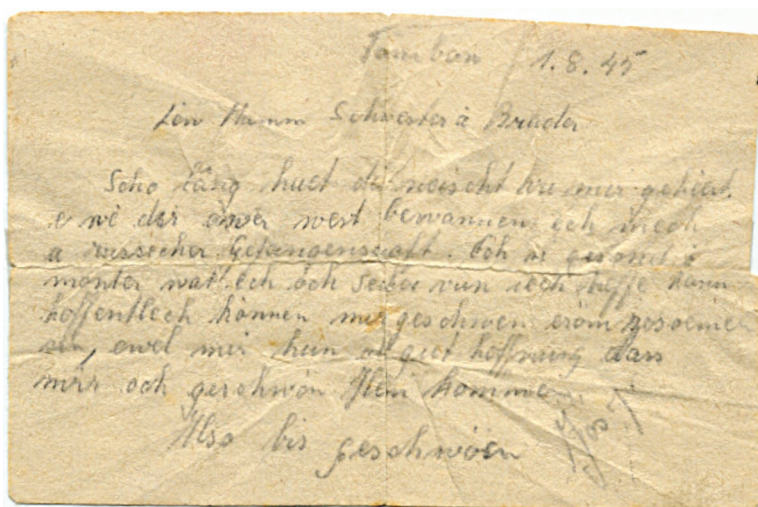 Tambow 1.8.45
Lew Mamm Schwester a Brueder
Scho läng huet dir neischt vu mir gehiert
e we dir ower west bewannen ech mech
a russecher Gefangenschaft. Ech si gesond a
monter wat ech och selwe vun iech hoffe kann
hoffentlech können mir geschwen erom zesoemen
sin, ewel mir hun di giet hoffnung dass
mir och geschwön Hem komme
Also bis geschwöen
Jos. J.